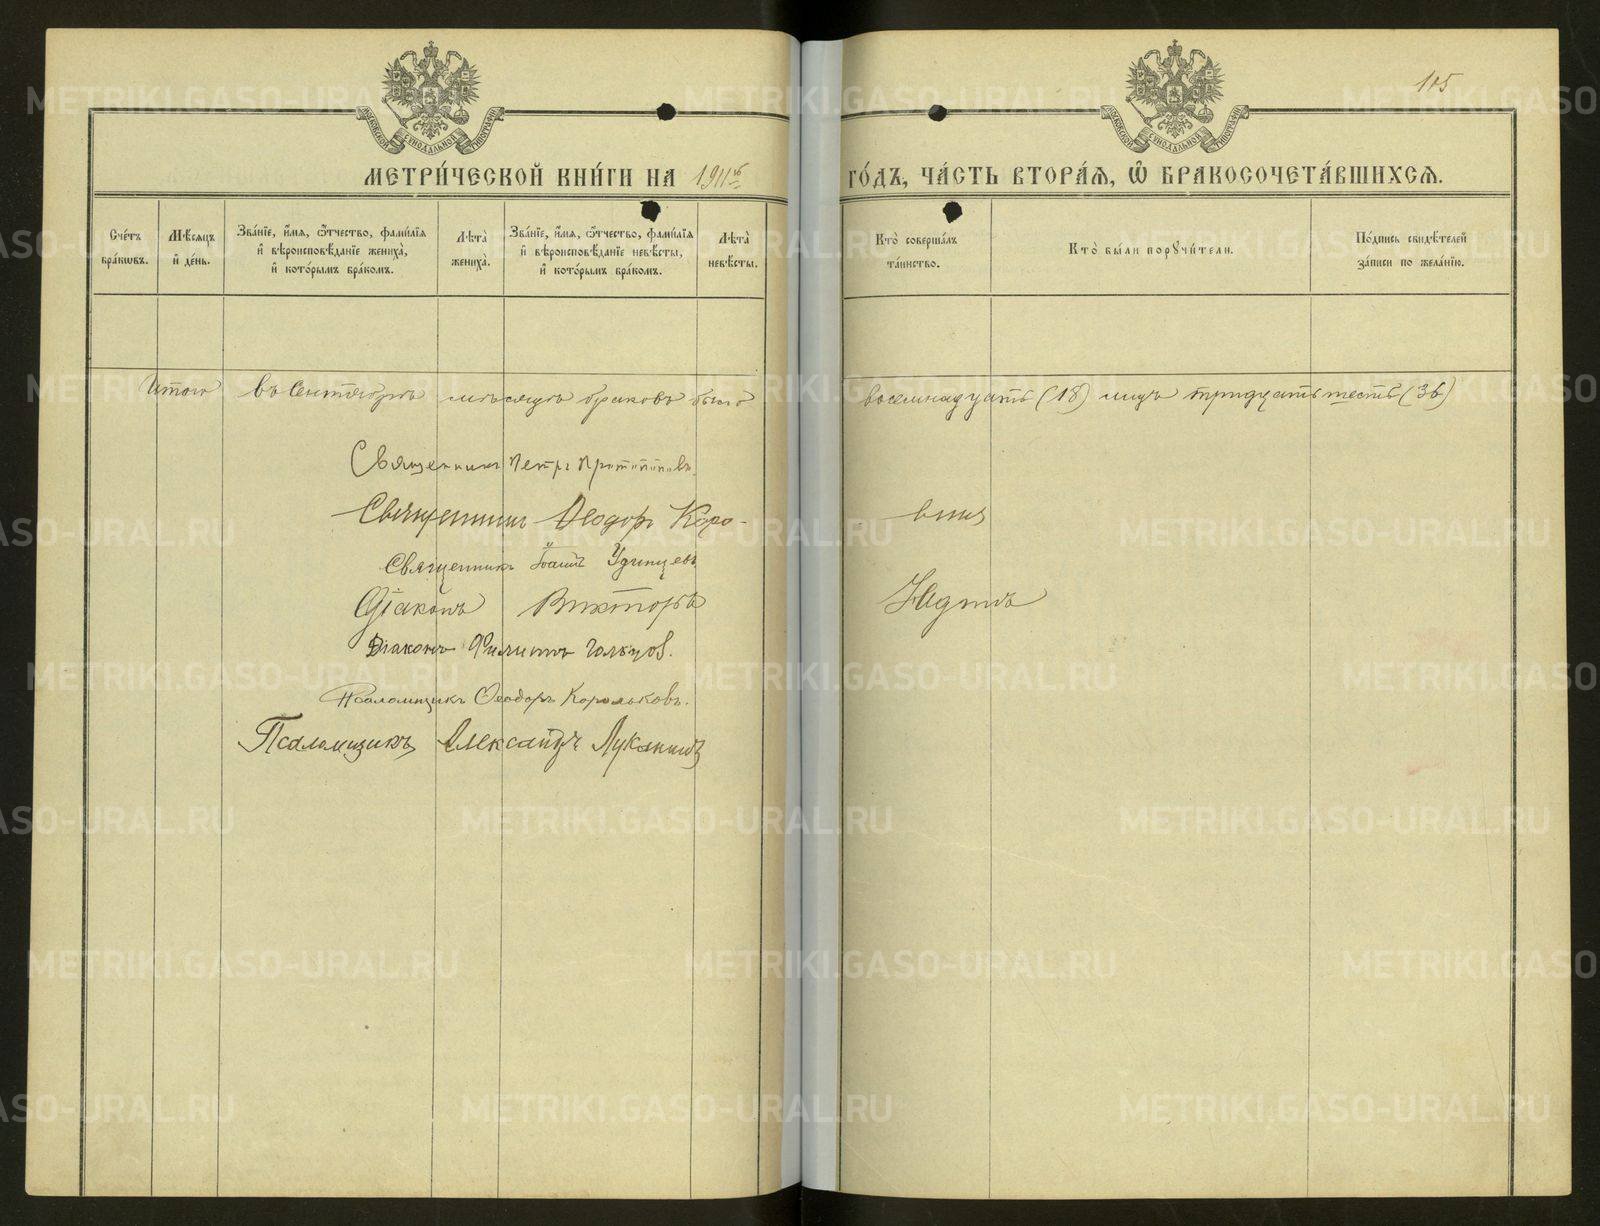 115
МОСКОВСКОЙ СУНОДАЛЬНОЙ ТИПОГРАФІИ
МОСКОВСКОЙ СУНОДАЛЬНОЙ ТИПОГРАФІИ
МЕТРИ́ЧЕСКОЙ КНИ́ГИ НА 1911й ГО́ДЪ, ЧА́СТЬ ВТОРА́Я, Ѽ БРАКОСОЧЕТА́ВШИХСѦ.
Сче́тъ бра́кѡвъ.
Мѣ́сяцъ и҆ де́нь.
Зва́нїе, и҆́мѧ, ѻ҆́тчество, фами́лїѧ и҆ вѣроисповѣ́данїе жениха̀, и҆ кото́рымъ бра́комъ.
Лѣ́та̀ жениха̀.
Зва́нїе, и҆́мѧ, ѻ҆́тчество, фами́лїѧ и҆ вѣроисповѣ́данїе невѣ́сты, и҆ кото́рымъ бра́комъ.
Лѣ́та̀ невѣ́сты.
Кто̀ соверша́лъ та́инство.
Кто̀ бы́ли порꙋчи́тели.
По́дпись свидѣ́телей за́писи по жела́нїю.
Итого въ Сентябрѣ мѣсяцѣ браковъ было восемнадцать (18) лицъ тридцать шесть (36)
Священникъ Петръ Протопоповъ.
Священникъ Ѳеодоръ Коровинъ
Священникъ Іоаннъ Удинцевъ
Діаконъ Викторъ
Діаконъ Филиппъ Гольцов.
Псаломщикъ Ѳеодоръ Корольковъ.
Псаломщикъ Александръ Луканинъ
METRIKI.GASO-URAL.RU